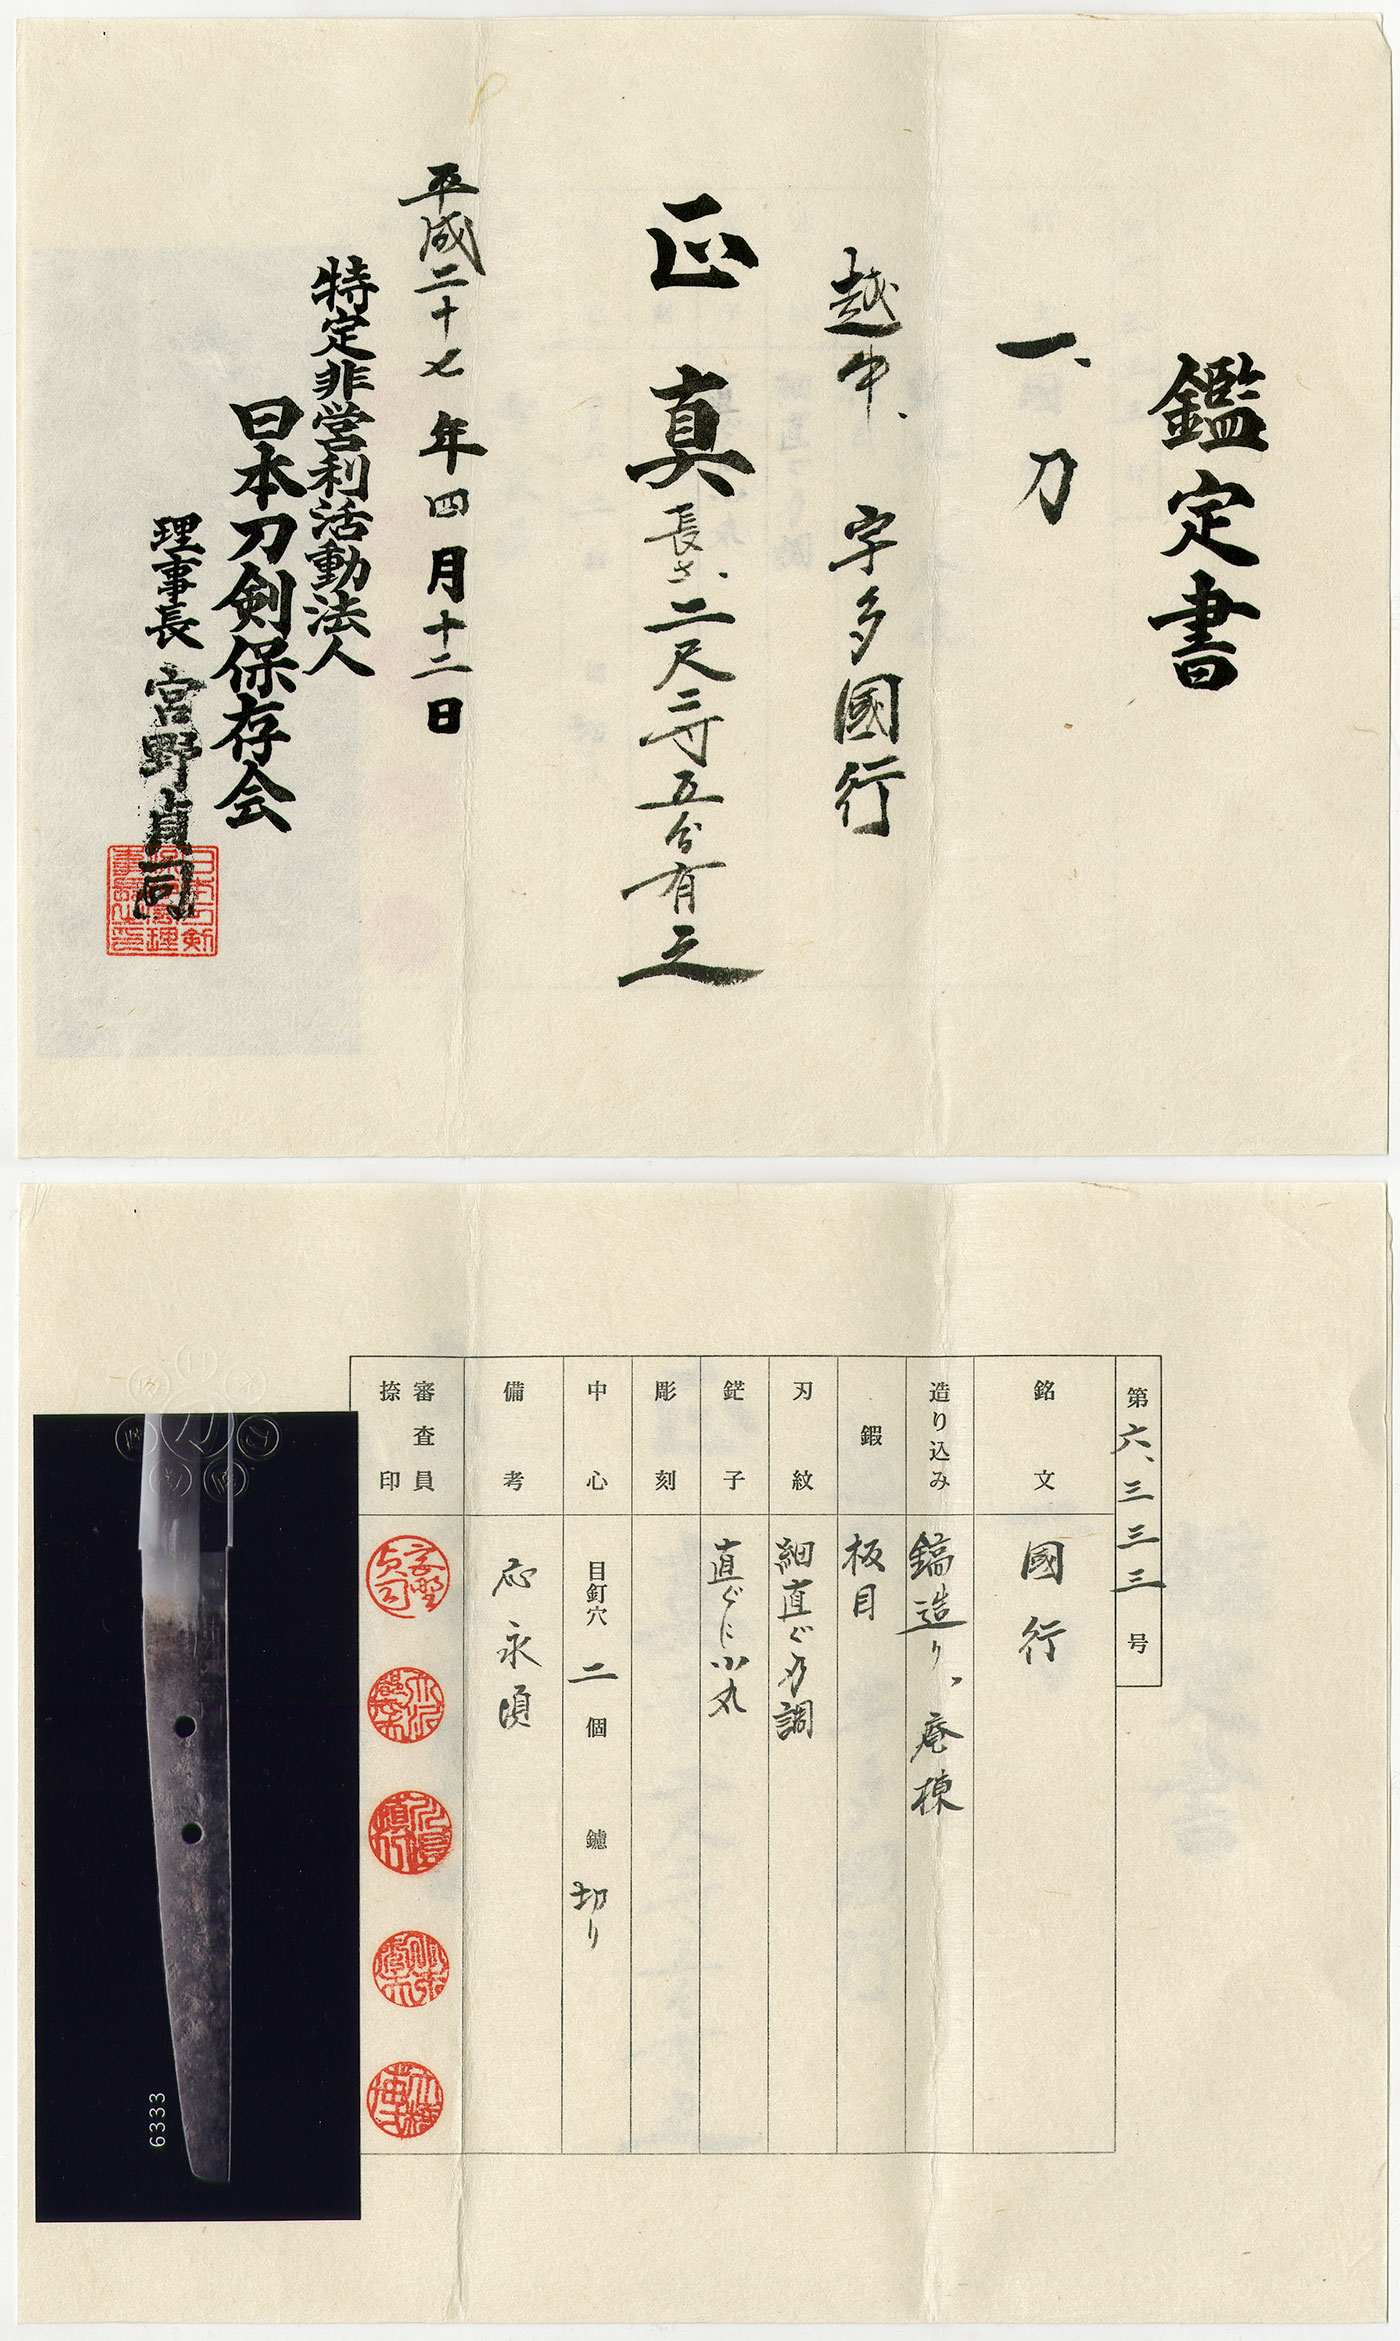 鑑定書
一、刀
越中、宇多國行
正真 長さ、二尺三寸五分有之
平成二十七年四月十二日
特定非営利活動法人
日本刀剣保存会
理事長 宮野貞司
第六、三三三号
銘文 國行
造り込み 鎬造り、庵棟
鍜 板目
刃紋 細直ぐ刃調
鋩子 直ぐに小丸
彫刻
中心 目釘穴 二個 鑢 切り
備考 応永頃
審査員捺印
6333